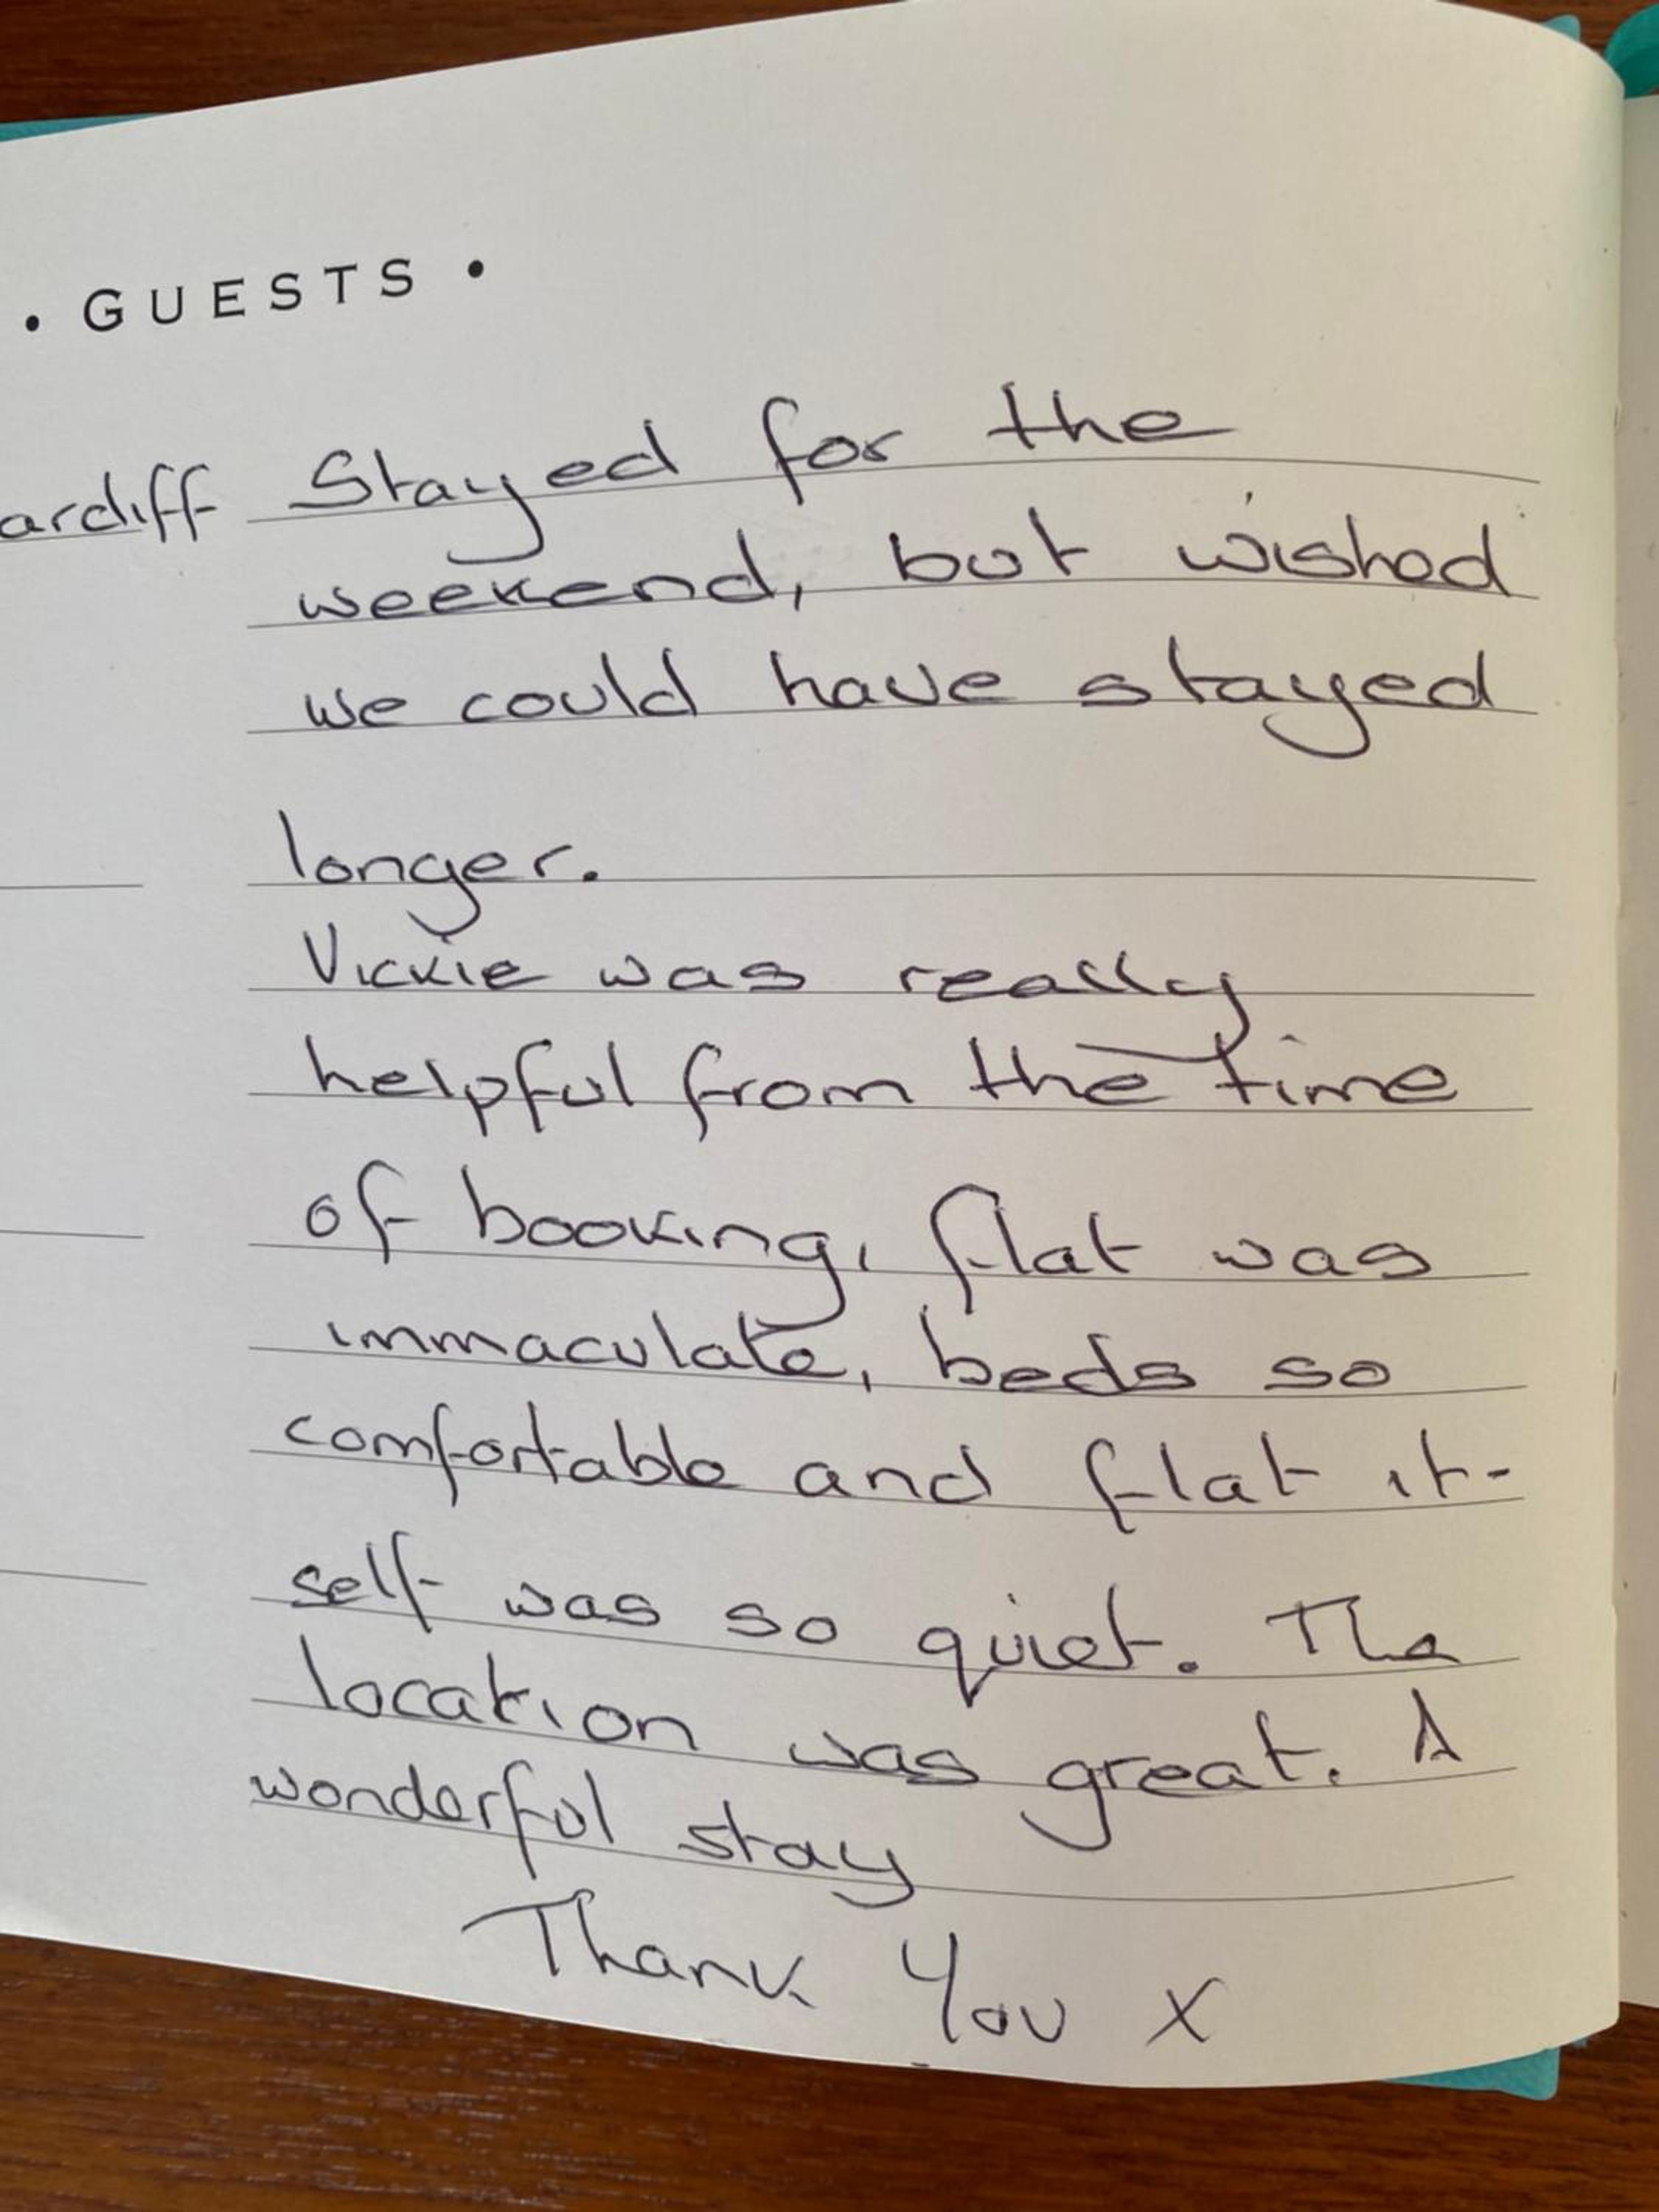 • GUESTS •
ardiff Stayed for the
weekend, but wished
we could have stayed
longer.
Vickie was really
helpful from the time
of booking, flat was
immaculate, beds so
comfortable and flat it-
self was so quiet. The
location was great. A
wonderful stay
Thank You x